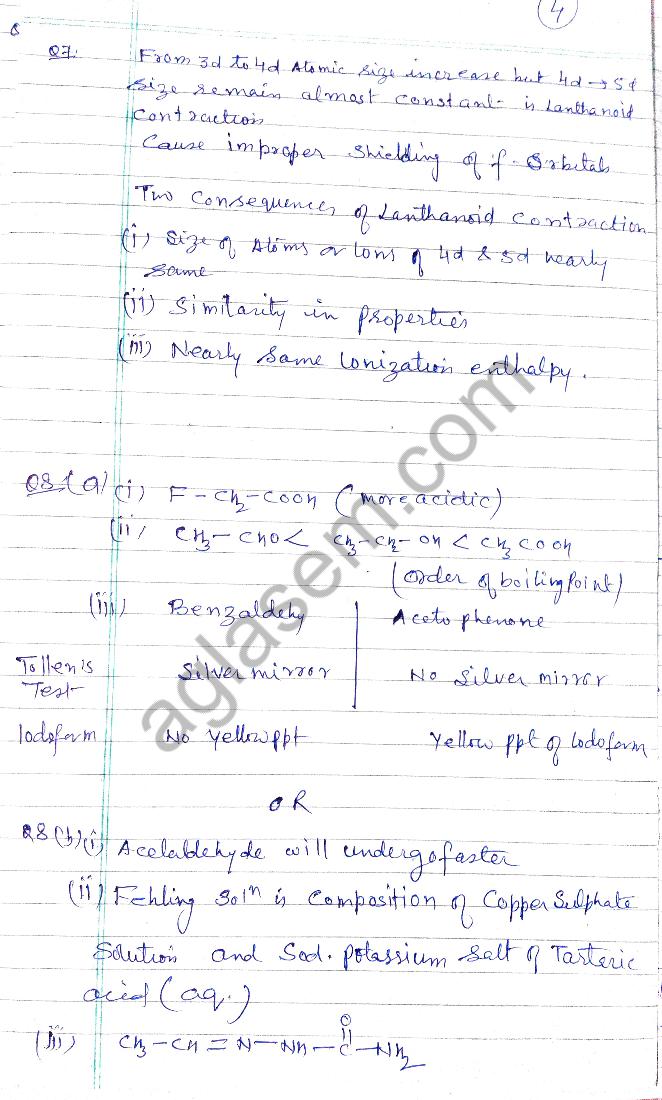 4
Q7. From 3d to 4d Atomic size increase but 4d → 5d
size remain almost constant is Lanthanoid
contraction
Cause improper shielding of f-orbitals
Two consequences of Lanthanoid contraction
(i) Size of Atoms or Ions of 4d & 5d nearly
same
(ii) Similarity in properties
(iii) Nearly same Ionization enthalpy.
Q8 (a) (i) F-CH2-COOH (more acidic)
(ii) CH3-CHO < CH3-CH2-OH < CH3COOH
(order of boiling point)
(iii) Benzaldehy Aceto phenone
Tollen's Test Silver mirror No Silver mirror
Iodoform No Yellow ppt Yellow ppt of Iodoform
OR
Q8 (b) (i) Acelaldehyde will undergo faster
(ii) Fehling Soln is Composition of Copper Sulphate
Solution and Sod. potassium Salt of Tarteric
acid (aq.)
(iii) CH3-CH=N-NH-C-NH2
O
aglasem.com